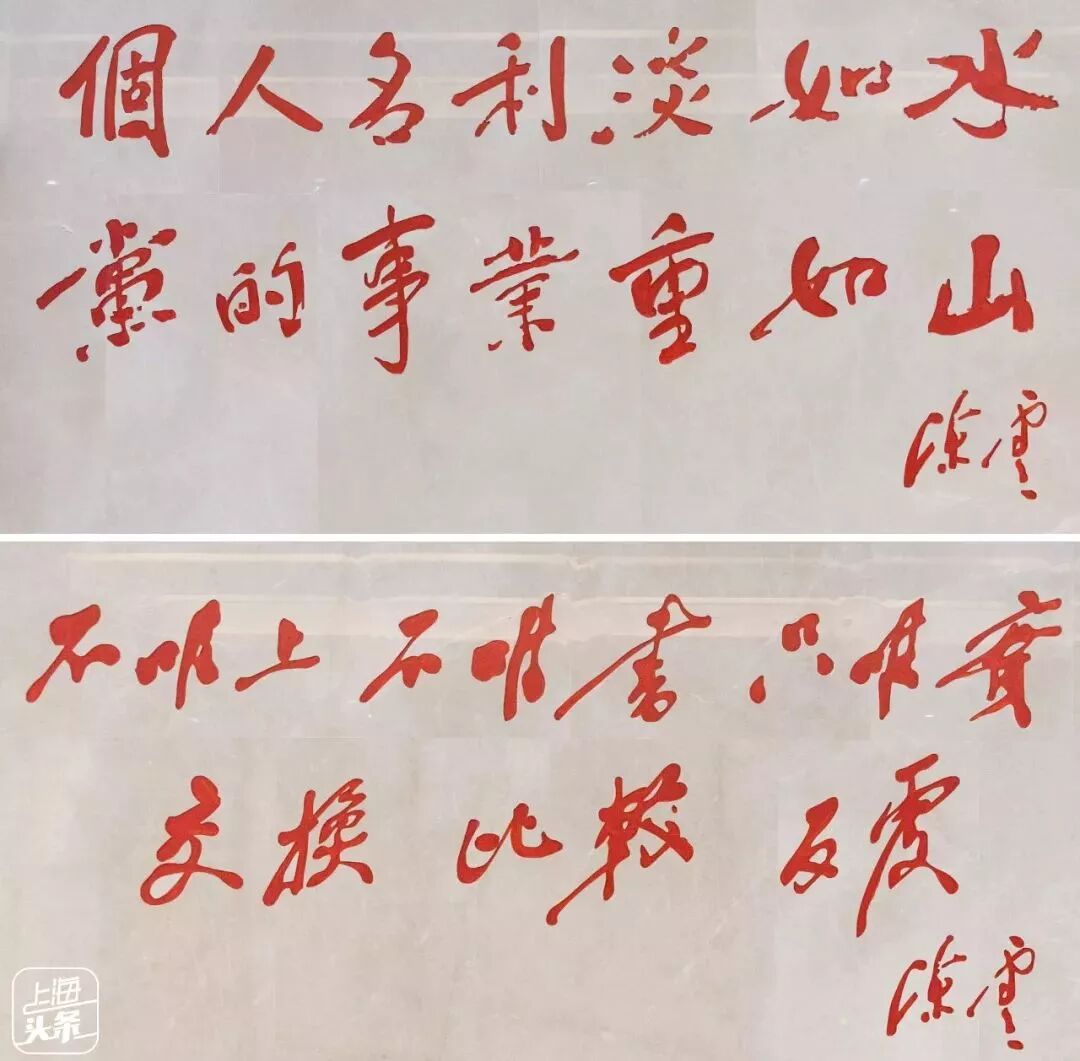 個人名利淡如水
黨的事業重如山
陳雲
不唯上 不唯書 只唯實
交換 比較 反覆
陳雲
上海
头条